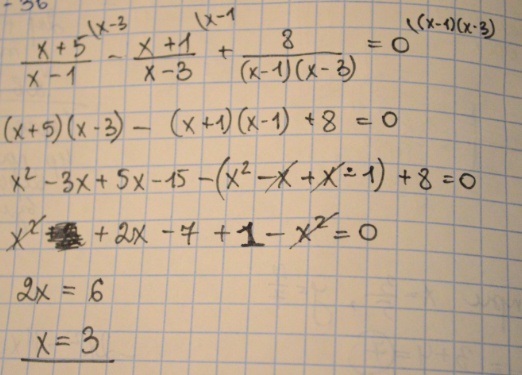 - 36
(x+5)/(x-1) ⁽ˣ⁻³ - (x+1)/(x-3) ⁽ˣ⁻¹ + 8/((x-1)(x-3)) = 0 \((x-1)(x-3)
(x+5)(x-3) - (x+1)(x-1) + 8 = 0
x² - 3x + 5x - 15 - (x² - x + x - 1) + 8 = 0
x² + 2x - 7 + 1 - x² = 0
2x = 6
x = 3